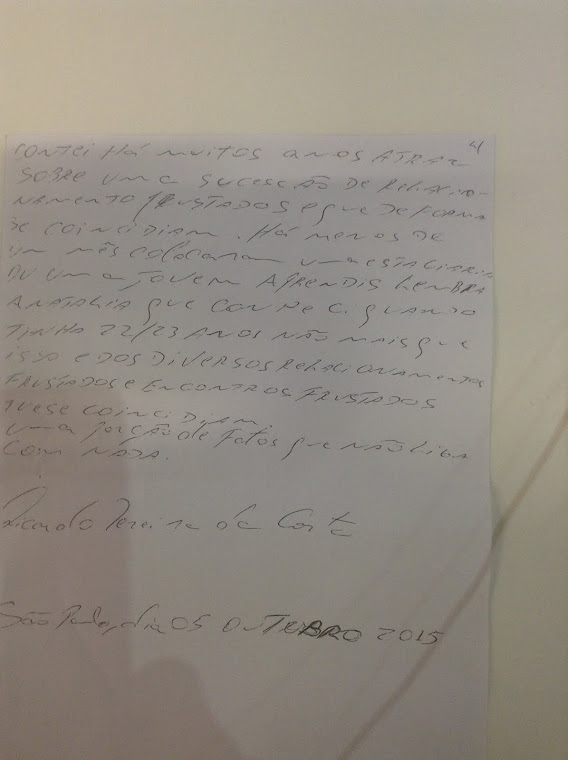 4
CONTEI HÁ MUITOS ANOS ATRAZ
SOBRE UMA SUCESSÃO DE RELACIO-
NAMENTO FRUSTADOS E QUE DE FORMA
SE COINCIDIAM. HÁ MENOS DE
UM MÊS COLOCARAM UMA ESTAGIARIA
OU UMA JOVEM APRENDIS LEMBRA
ANATALIA QUE CONHECI QUANDO
TINHA 22/23 ANOS NÃO MAIS QUE
ISSO E DOS DIVERSOS RELACIONAMENTOS
FRUSTADOS E ENCONTROS FRUSTADOS
QUE SE COINCIDIAM
UMA PORÇÃO DE FATOS QUE NÃO LIGA
COM NADA.
Ricardo Pereira da Costa
São Paulo, dia 05 OUTUBRO 2015